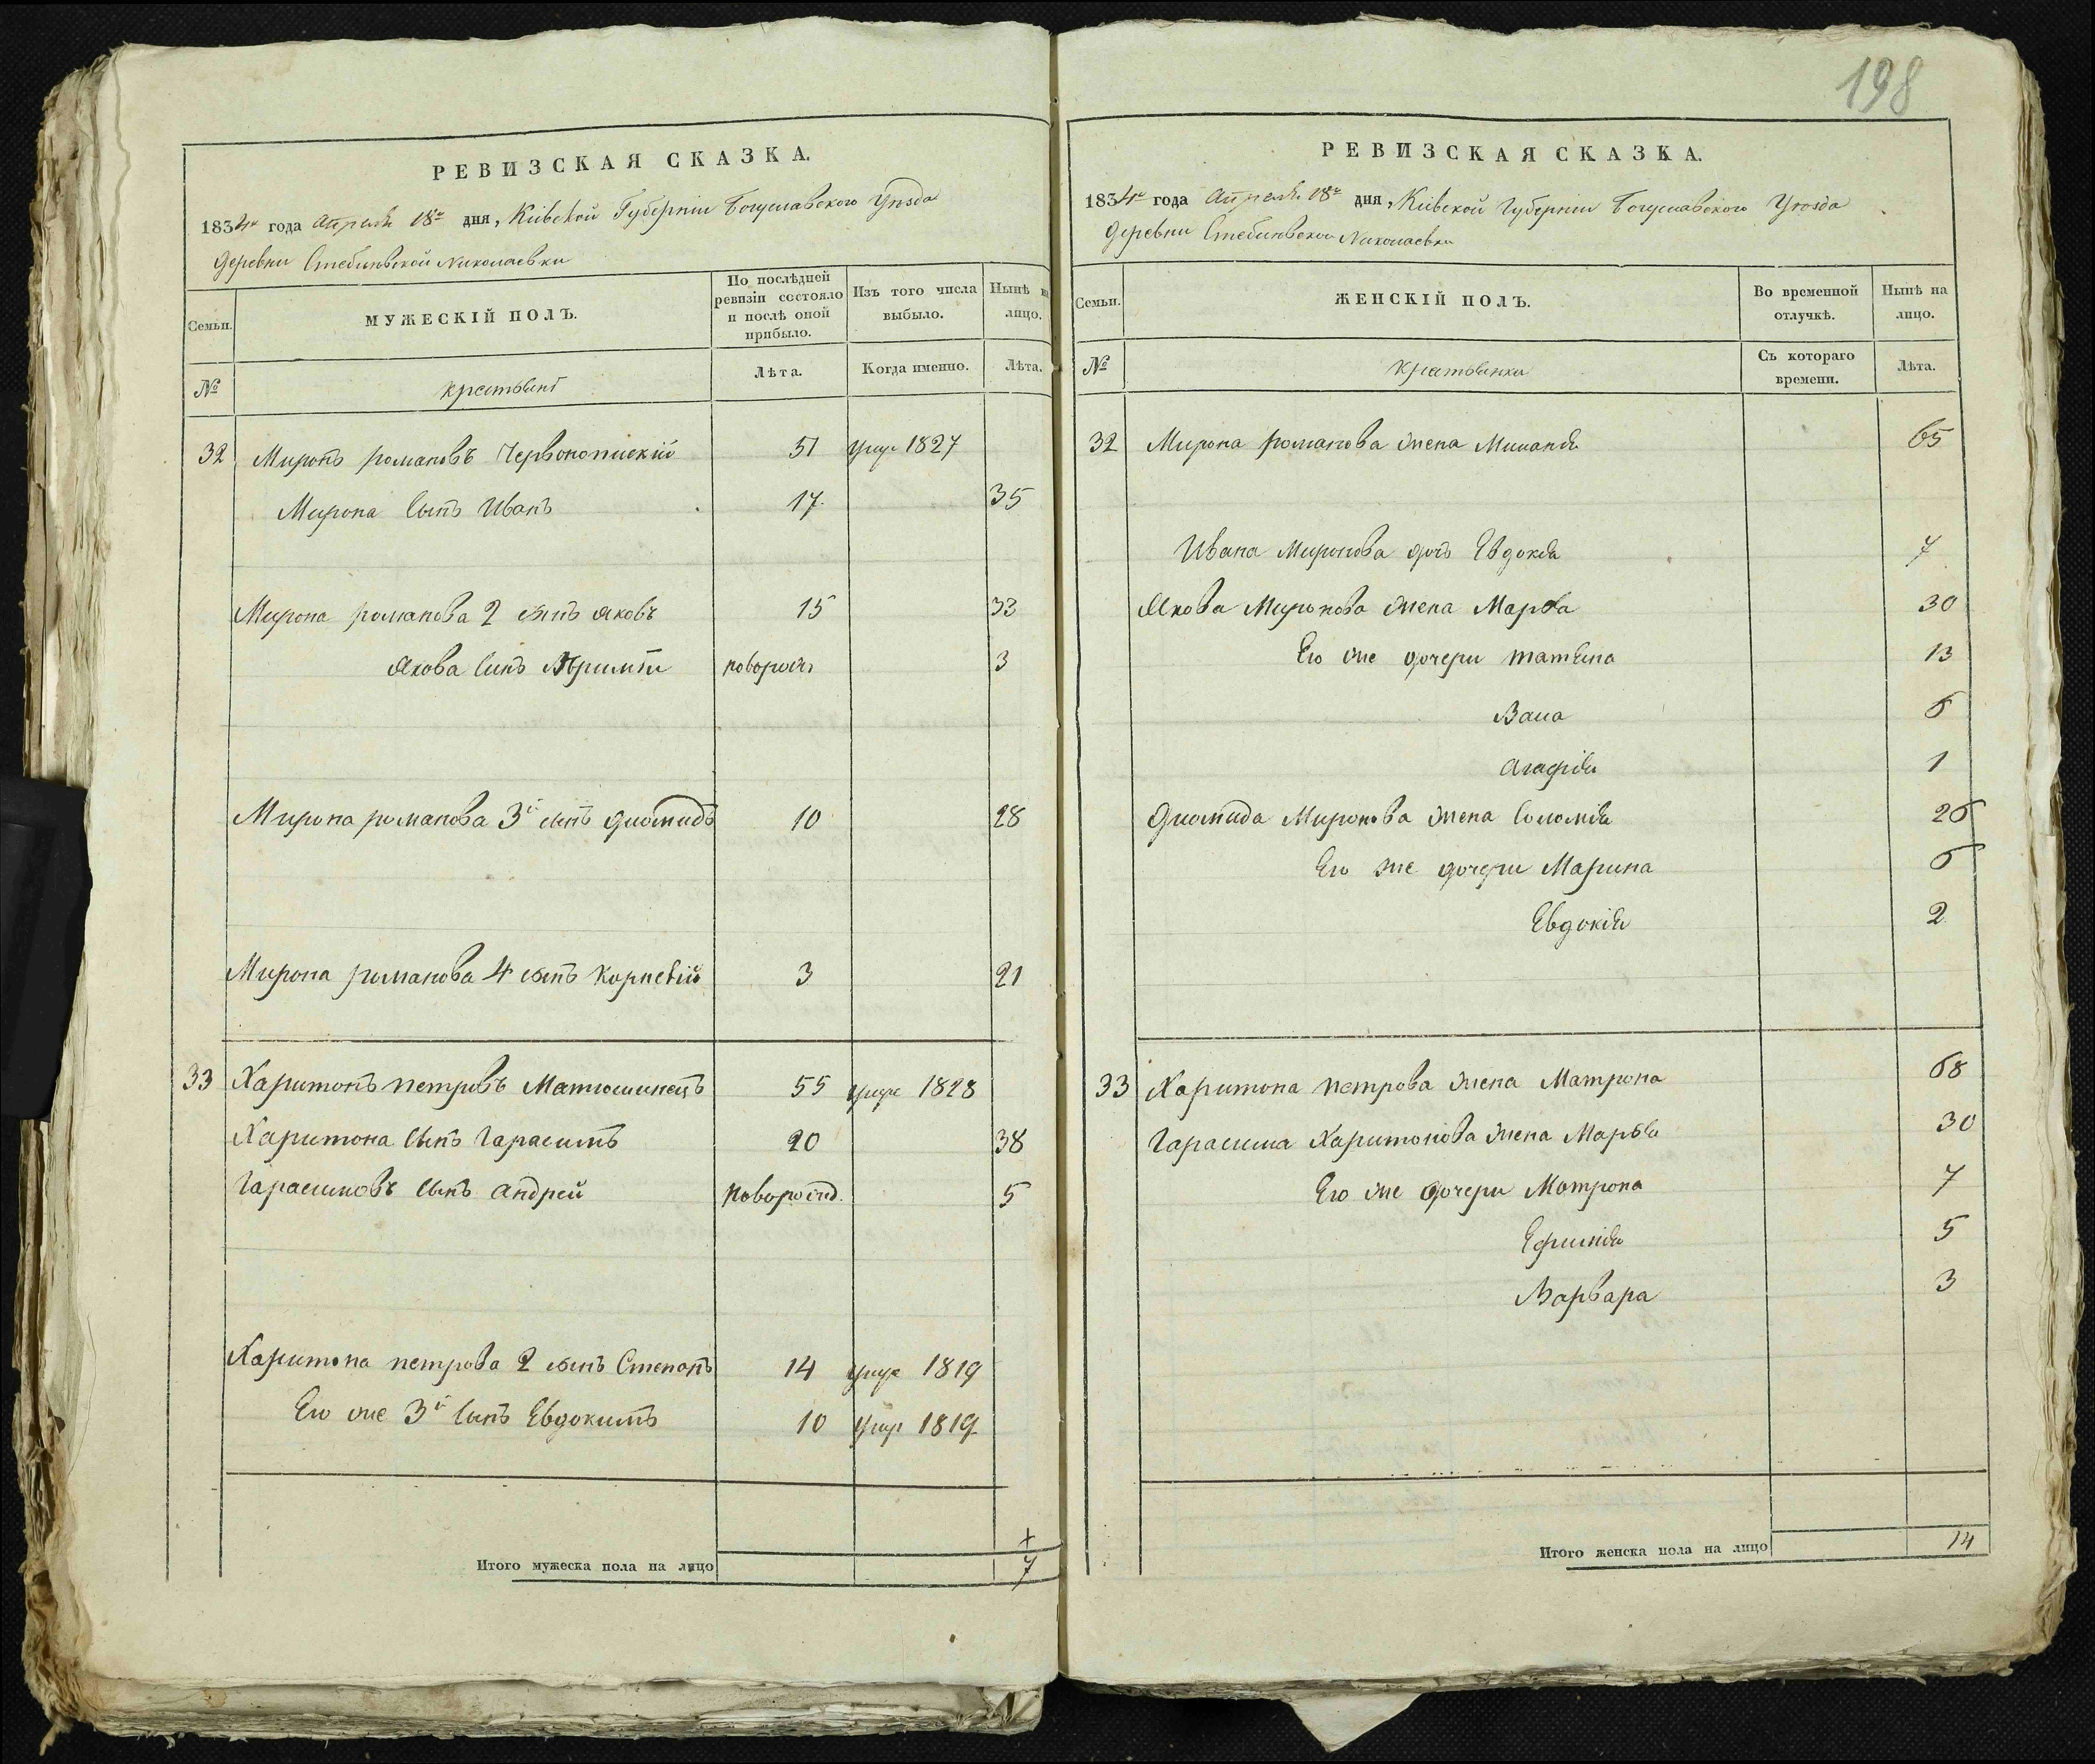 198
РЕВИЗСКАЯ СКАЗКА.
1834 года Апреля 18 дня, Кіевской Губерніи Богуславского Уезда
деревни Стебловской Николаевки
Семьи.
МУЖЕСКІЙ ПОЛЪ.
По послѣдней ревизіи состояло и послѣ оной прибыло.
Изъ того числа выбыло.
Нынѣ на лицо.
№
Крестьяне
Лѣта.
Когда именно.
Лѣта.
32 Миронъ романовъ 51 умре 1827
Мирона сынъ Иванъ 17 35
Мирона романова 2 сынъ яковъ 15 33
Якова сынъ новорож 3
Мирона романова 3й сынъ диомидъ 10 28
Мирона романова 4 сынъ Корнелій 3 21
33 Харитонъ петровъ Матюшинецъ 55 умре 1828
Харитона сынъ Гарасимъ 20 38
Гарасимовъ сынъ андрей Новорожд. 5
Харитона петрова 2 сынъ Степанъ 14 умре 1819
Его же 3й сынъ Евдокимъ 10 умр 1819
Итого мужеска пола на лицо 7
РЕВИЗСКАЯ СКАЗКА.
1834 года Апреля 18 дня, Кіевской Губерніи Богуславского Уезда
деревни Стебловской Николаевки
Семьи.
ЖЕНСКІЙ ПОЛЪ.
Во временной отлучкѣ.
Нынѣ на лицо.
№
Крестьянки
Съ котораго времени.
Лѣта.
32 Мирона романова жена 65
Ивана Миронова дочь Евдокія 7
Якова Миронова жена Марѳа 30
Его же дочери татьяна 13
Васа 6
агафія 1
Диомида Миронова жена Соломія 26
Его же дочери Марина 6
Евдокія 2
33 Харитона петрова жена Матрона 68
Гарасима Харитонова жена Марья 30
Его же дочери Матрона 7
Ефимія 5
Варвара 3
Итого женска пола на лицо 14